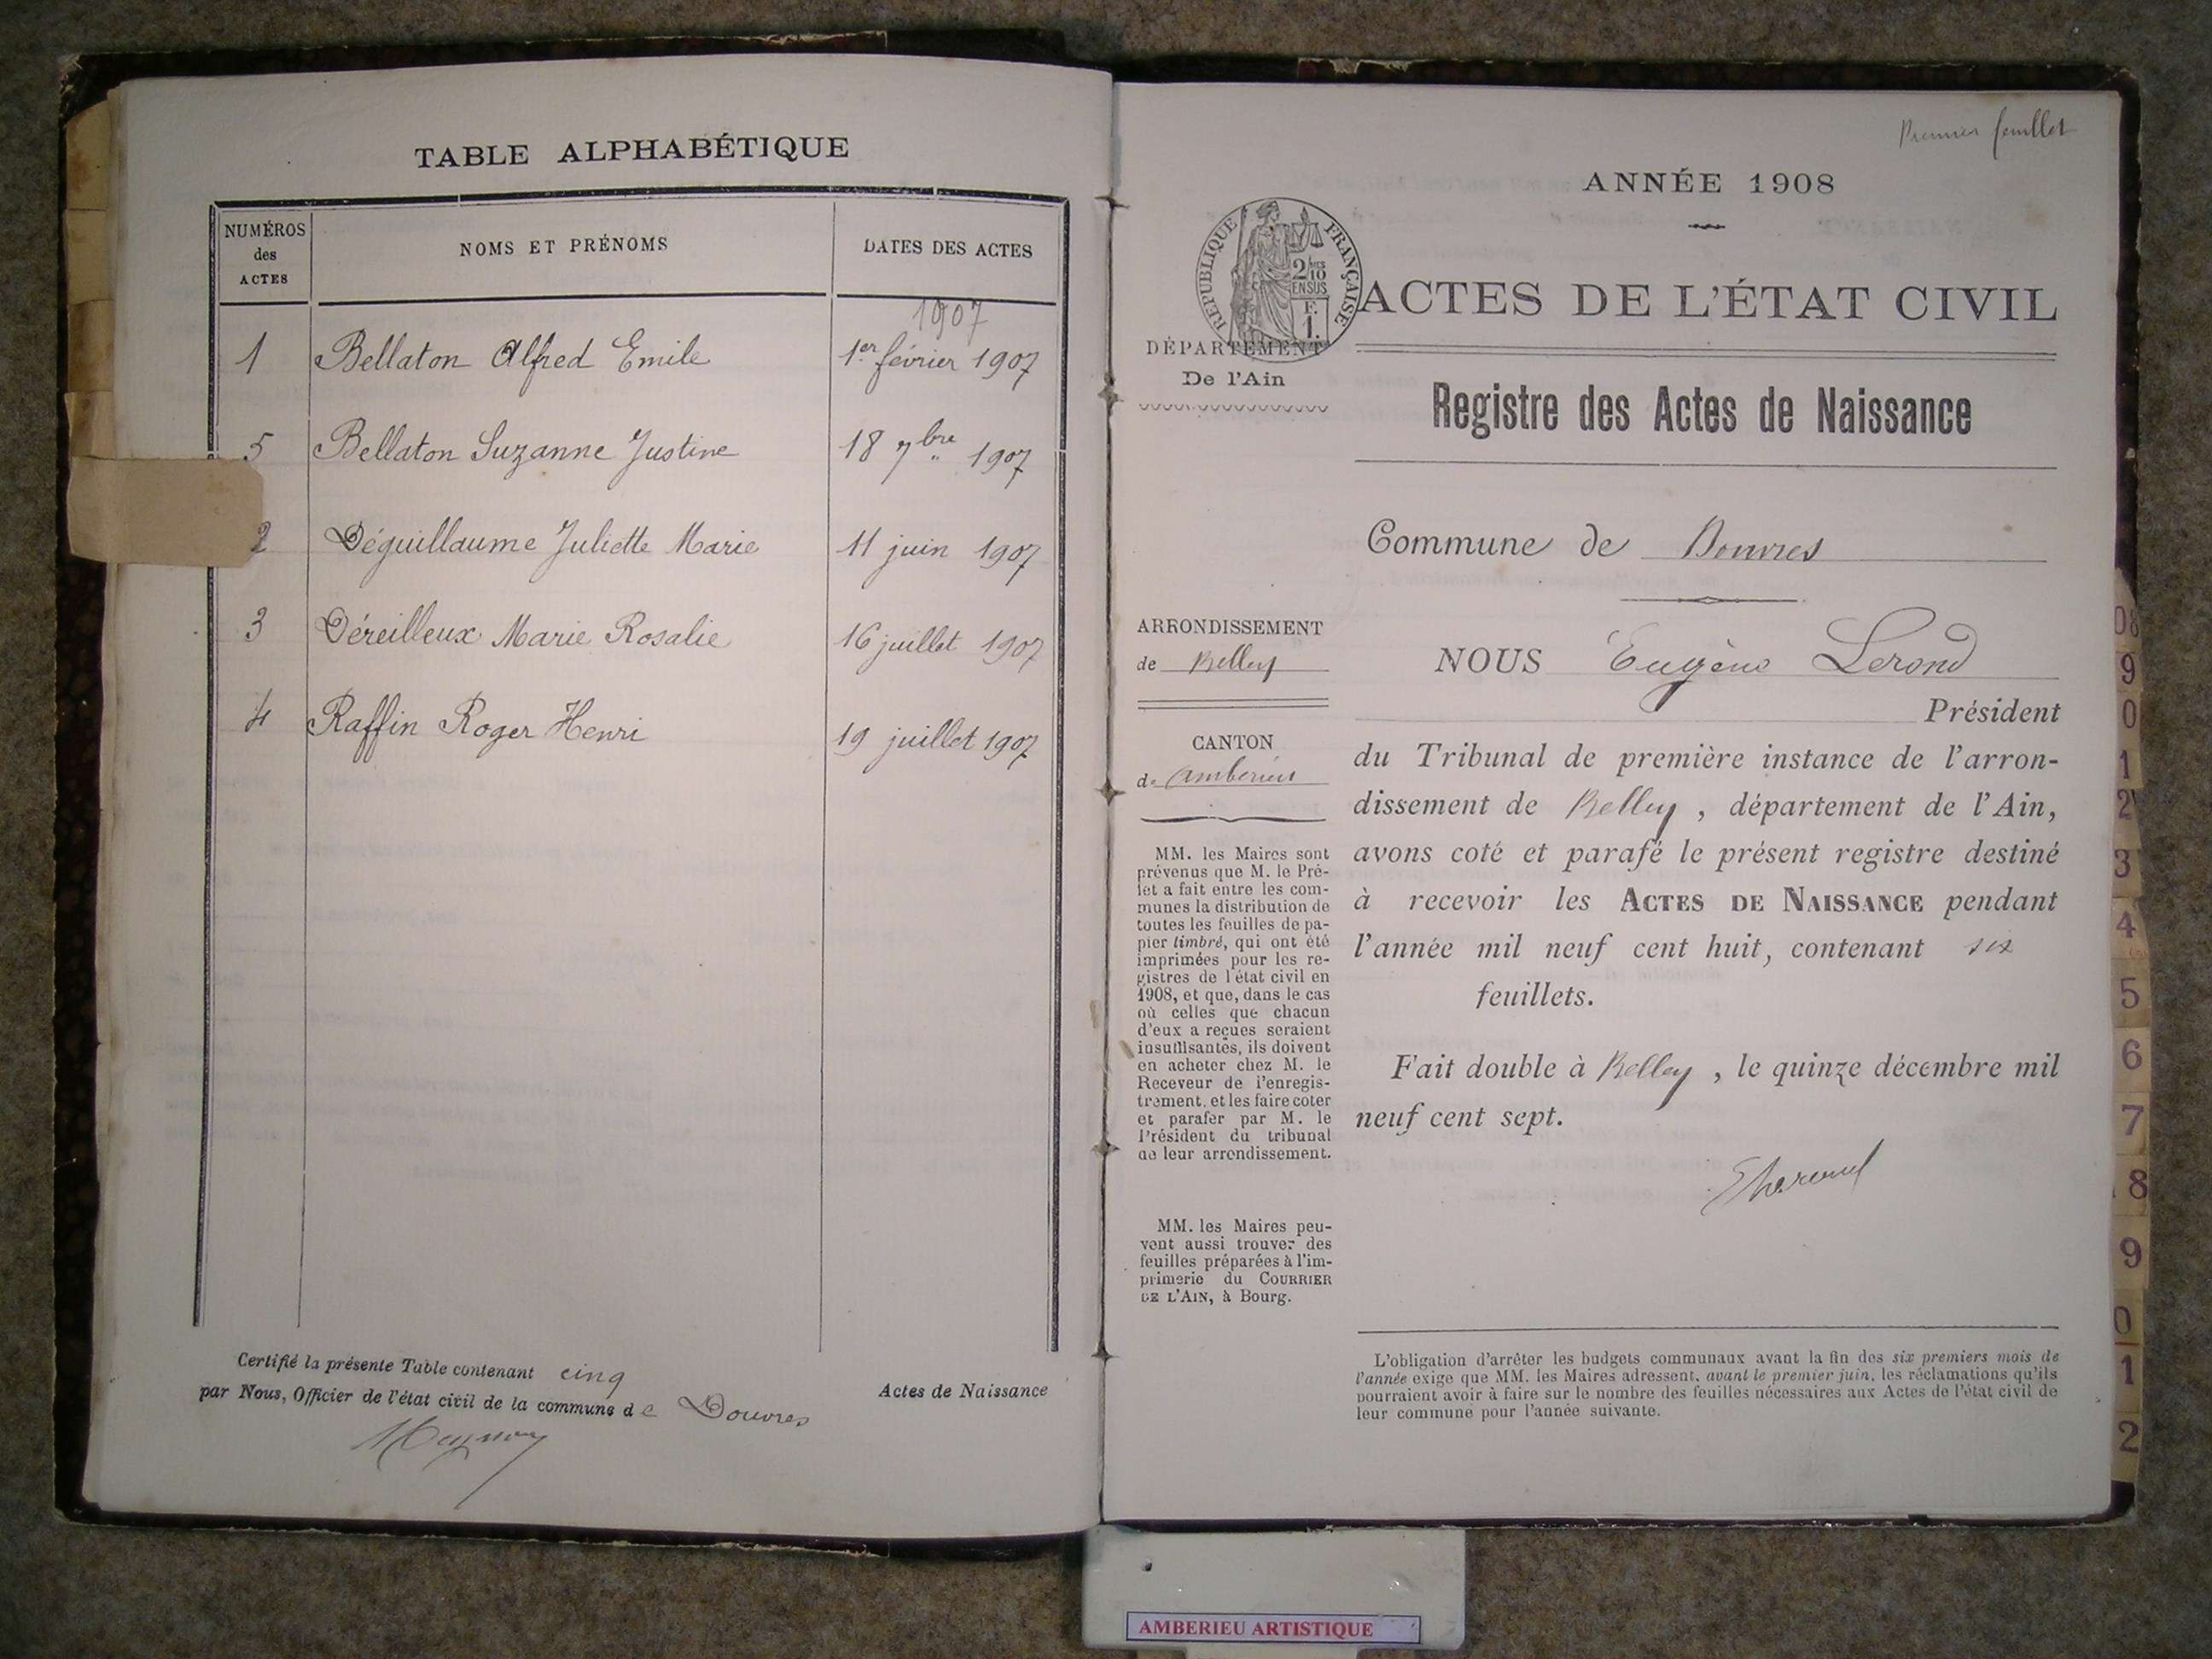 TABLE ALPHABÉTIQUE
NUMÉROS
des
ACTES
NOMS ET PRÉNOMS
DATES DES ACTES
1907
1 Bellaton Alfred Emile 1er février 1907
5 Bellaton Suzanne Justine 18 7bre 1907
2 Déguillaume Juliette Marie 11 juin 1907
3 Déreilleux Marie Rosalie 16 juillet 1907
4 Raffin Roger Henri 19 juillet 1907
Certifié la présente Table contenant cinq Actes de Naissance
par Nous, Officier de l'état civil de la commune de Douvres
Premier feuillet
ANNÉE 1908
RÉPUBLIQUE FRANÇAISE
2/10
EN SUS
F.
1.
ACTES DE L'ÉTAT CIVIL
DÉPARTEMENT
De l'Ain
Registre des Actes de Naissance
Commune de Douvres
ARRONDISSEMENT
de Belley
CANTON
de Ambérieu
MM. les Maires sont
prévenus que M. le Pré-
fet a fait entre les com-
munes la distribution de
toutes les feuilles de pa-
pier timbré, qui ont été
imprimées pour les re-
gistres de l'état civil en
1908, et que, dans le cas
où celles que chacun
d'eux a reçues seraient
insuffisantes, ils doivent
en acheter chez M. le
Receveur de l'enregis-
trement, et les faire coter
et parafer par M. le
Président du tribunal
de leur arrondissement.
MM. les Maires peu-
vent aussi trouver des
feuilles préparées à l'im-
primerie du COURRIER
DE L'AIN, à Bourg.
NOUS Eugène Lerond
Président
du Tribunal de première instance de l'arron-
dissement de Belley, département de l'Ain,
avons coté et parafé le présent registre destiné
à recevoir les ACTES DE NAISSANCE pendant
l'année mil neuf cent huit, contenant six
feuillets.
Fait double à Belley, le quinze décembre mil
neuf cent sept.
L'obligation d'arrêter les budgets communaux avant la fin des six premiers mois de
l'année exige que MM. les Maires adressent, avant le premier juin, les réclamations qu'ils
pourraient avoir à faire sur le nombre des feuilles nécessaires aux Actes de l'état civil de
leur commune pour l'année suivante.
08
9
0
1
2
3
4
5
6
7
8
9
0
1
2
AMBERIEU ARTISTIQUE